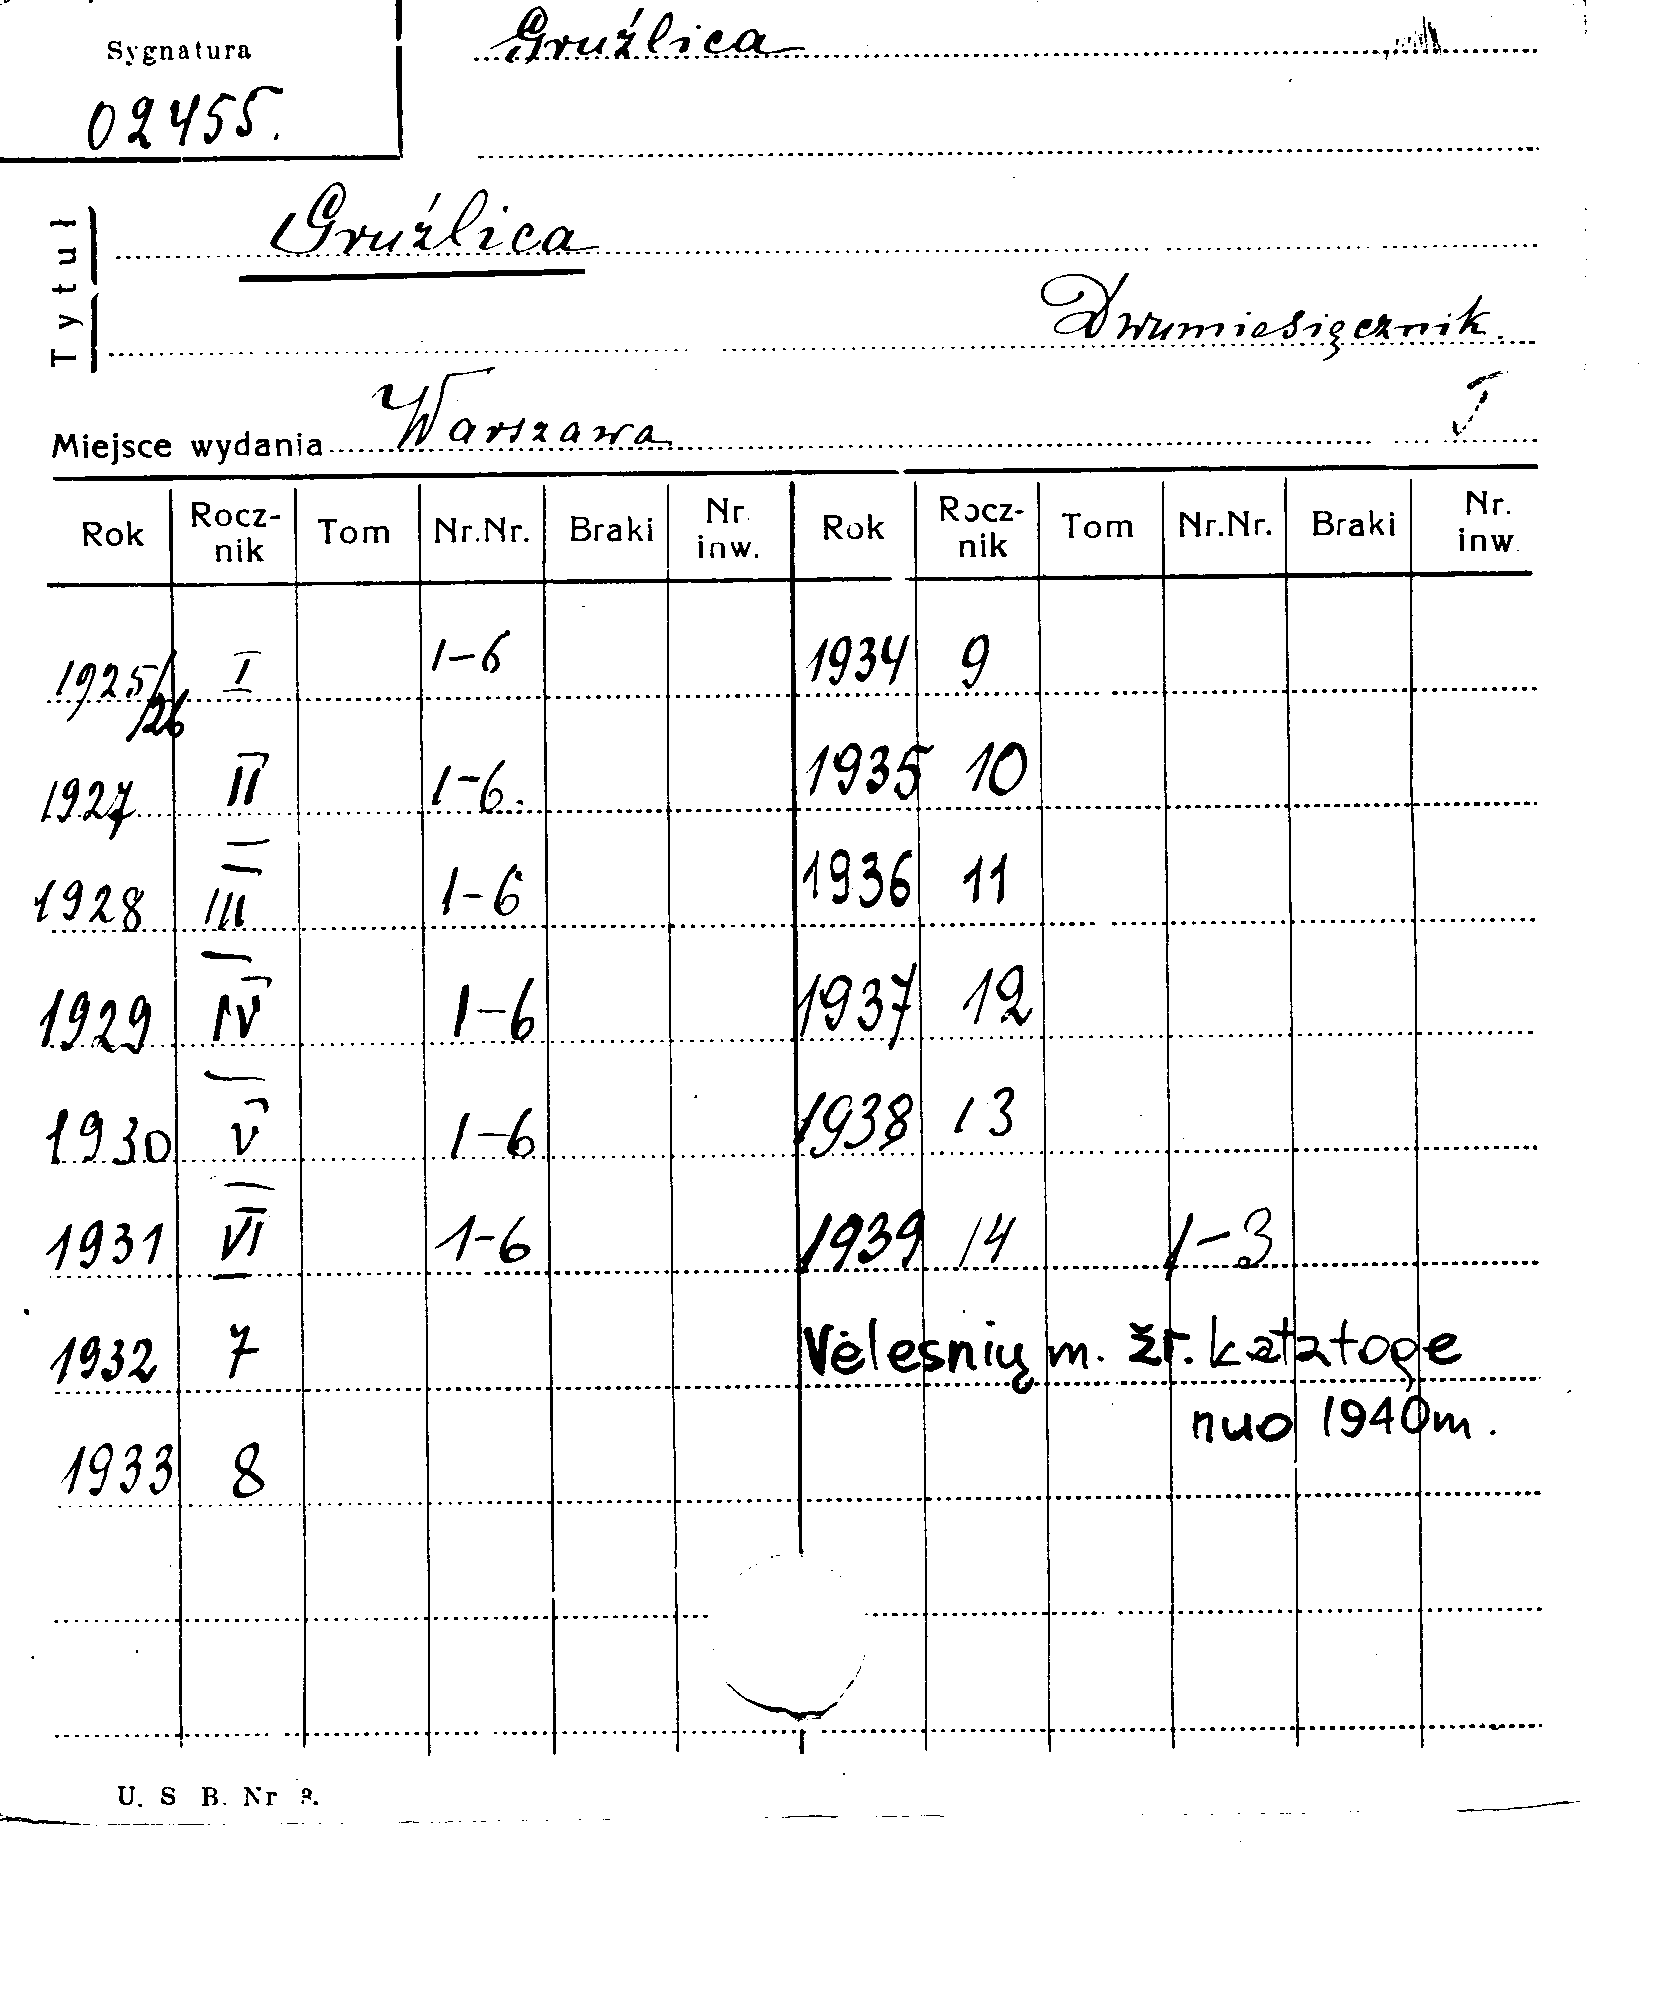 Sygnatura
Gruźlica
02455.
Tytuł
Gruźlica
Dwumiesięcznik.
Miejsce wydania Warszawa
Rok Rocz-nik Tom Nr.Nr. Braki Nr inw. Rok Rocz-nik Tom Nr.Nr. Braki Nr. inw.
1925/26 I 1-6 1934 9
1927 II 1-6. 1935 10
1928 III 1-6 1936 11
1929 IV 1-6 1937 12
1930 V 1-6 1938 13
1931 VI 1-6 1939 14 1-3
1932 7 Vėlesnių m. žr. kataloge
nuo 1940 m.
1933 8
U. S B. Nr